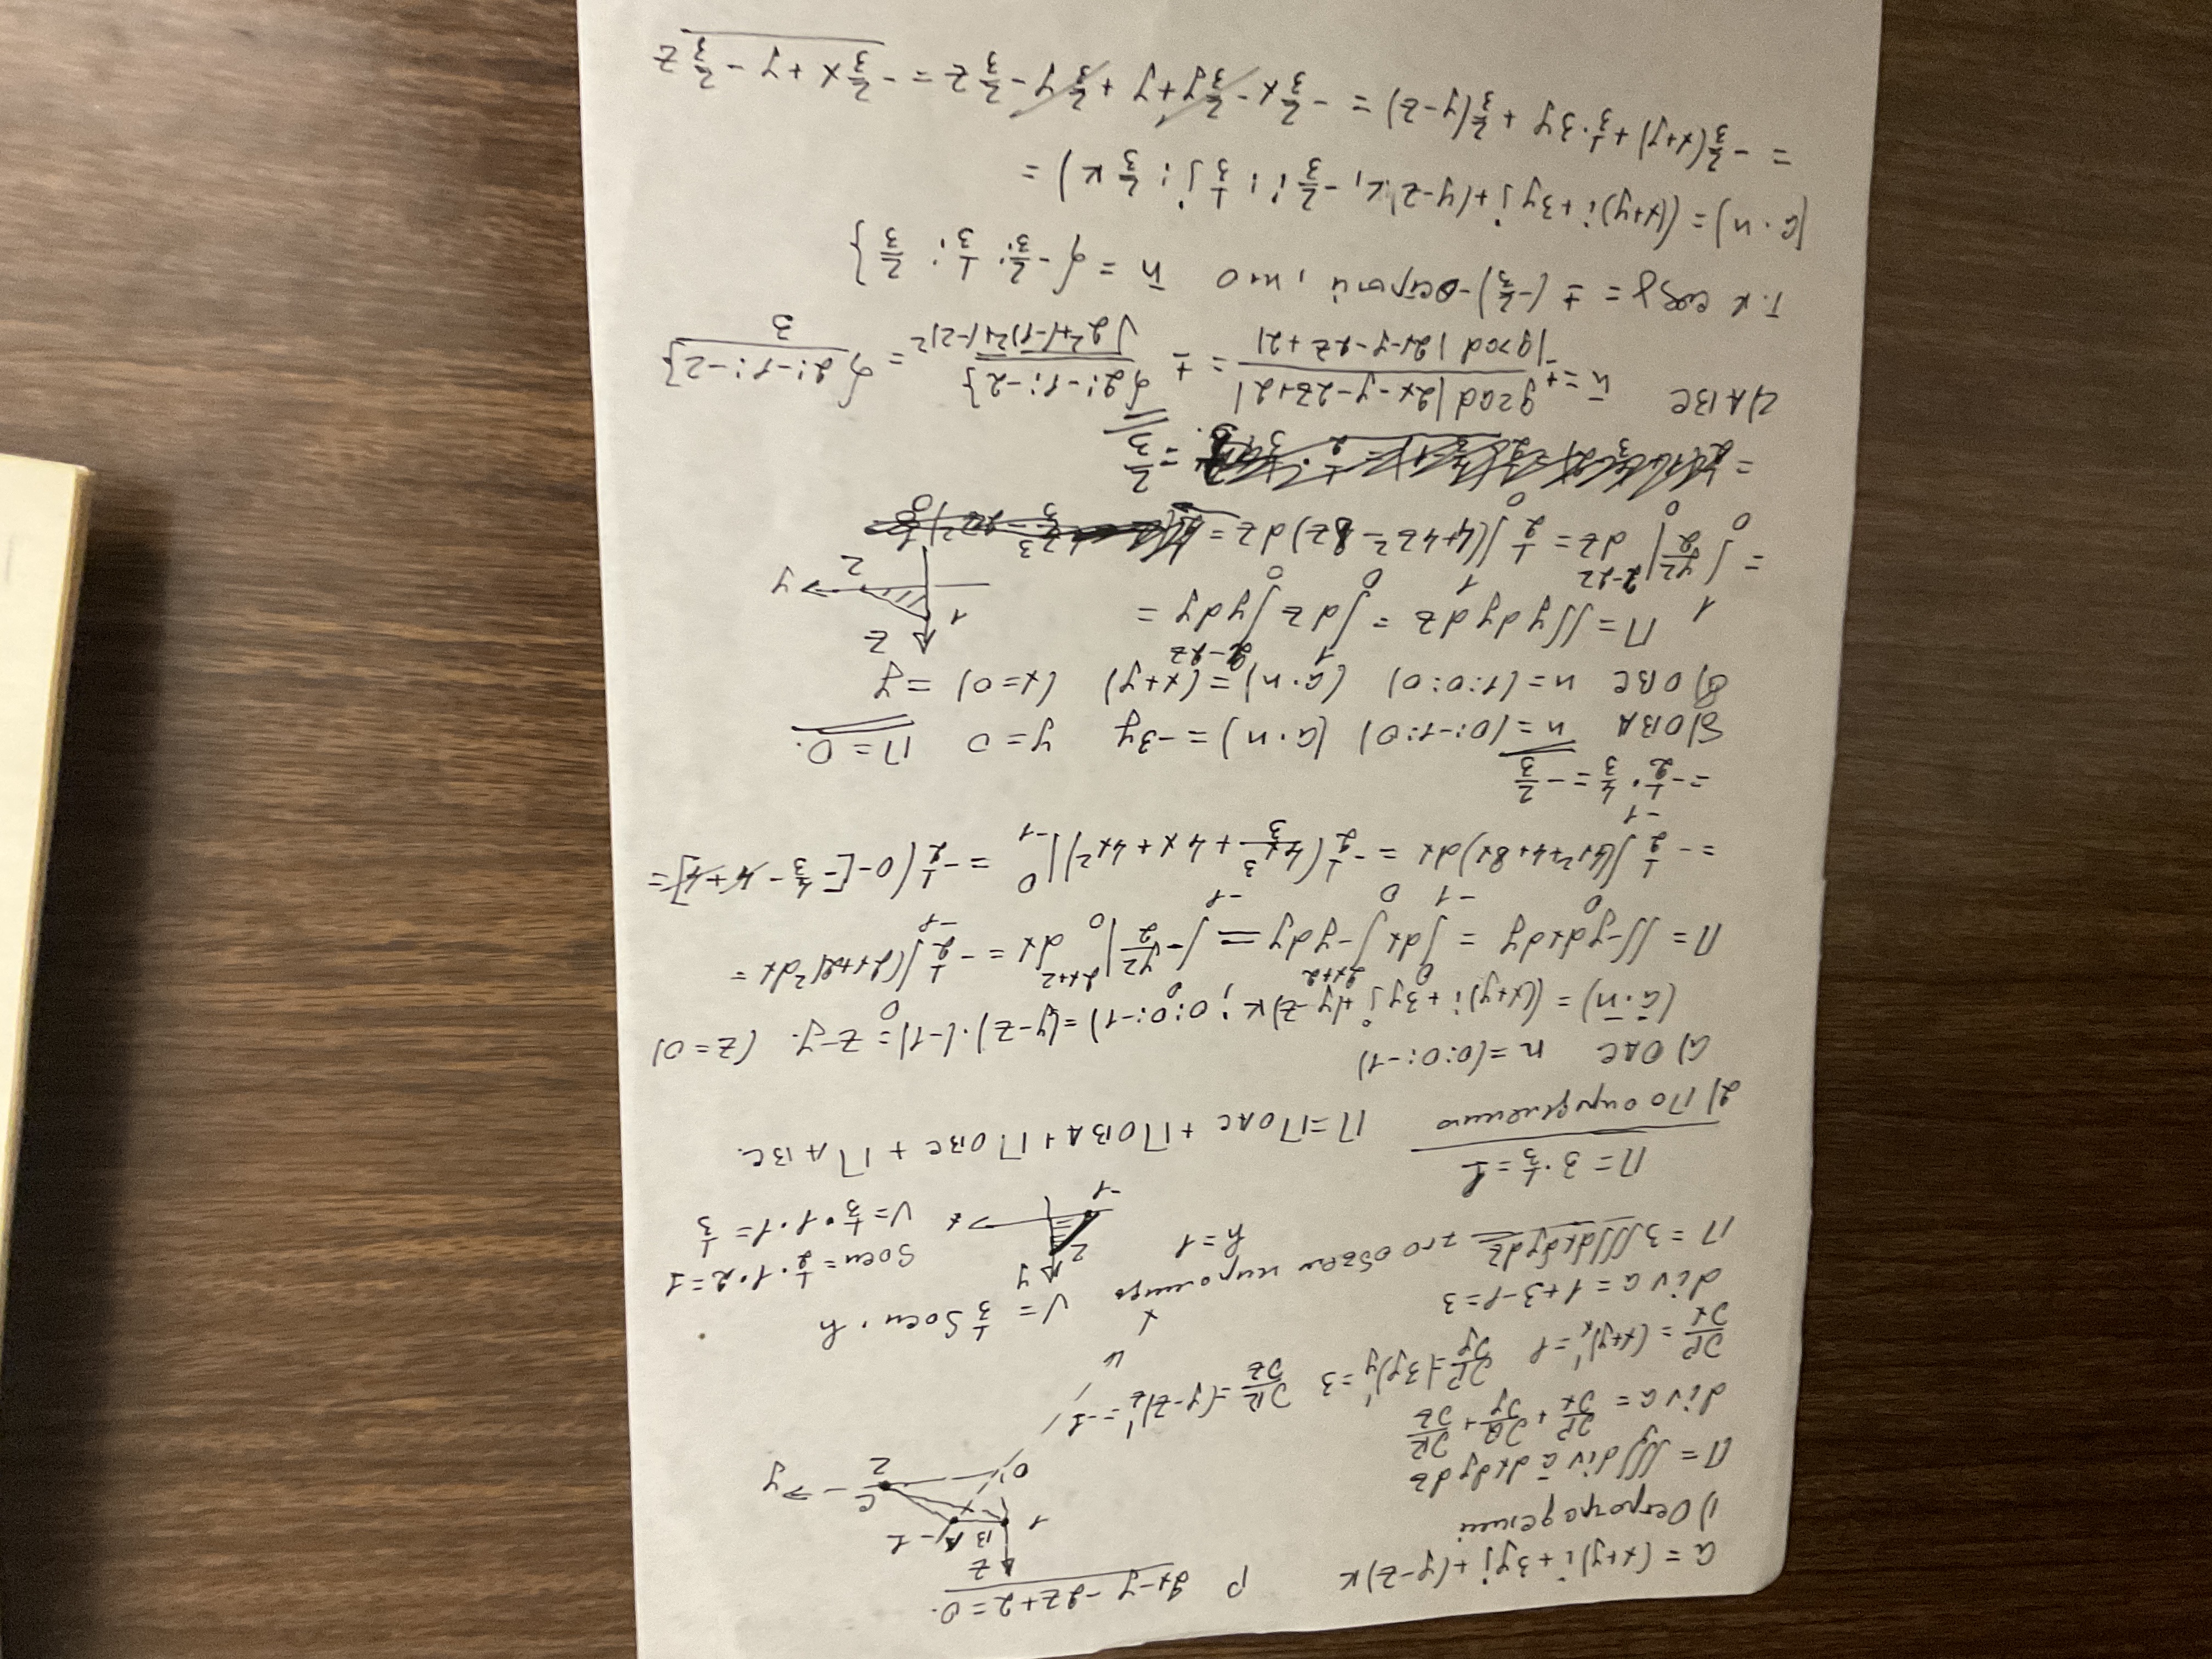 a = (x+y)i + 3yj + (y-z)k P 2x-y-2z+2=0.
1) Остроградский
П = ∭ div a dxdydz
div a = ∂P/∂x + ∂Q/∂y + ∂R/∂z
∂P/∂x = (x+y)'x = 1 ∂P/∂y = (3y)'y = 3 ∂R/∂z = (y-z)'z = -1
div a = 1+3-1 = 3
П = 3∭dxdydz это объем пирамиды V = 1/3 Sосн · h
h = 1 Sосн = 1/2 · 1 · 2 = 1
V = 1/3 · 1 · 1 = 1/3
П = 3 · 1/3 = 1
z 1 B A -1 C 2 y O x
y 2 x -1
2) По определению П = ПOAC + ПOBA + ПOBC + ПABC.
a) OAC n = (0; 0; -1)
(a·n) = (x+y)i + 3yj + (y-z)k; 0; 0; -1) = (y-z)·(-1) = z-y. (z=0)
П = ∬-ydxdy = ∫₋₁⁰ dx ∫₀²ˣ⁺² -ydy = ∫₋₁⁰ -y²/2 |₀²ˣ⁺² dx = -1/2 ∫₋₁⁰ (2x+2)²dx =
= -1/2 ∫₋₁⁰ (4x²+4+8x)dx = -1/2 (4x³/3 + 4x + 4x²)|₋₁⁰ = -1/2 (0-[-4/3 - 4+4] =
= -1/2 · 4/3 = -2/3
б) OBA n = (0; -1; 0) (a·n) = -3y y = 0 П = 0.
в) OBC n = (1; 0; 0) (a·n) = (x+y) (x=0) = y
П = ∬ydydz = ∫₀¹ dz ∫₀²⁻²ᶻ ydy =
z 1 2 y
= ∫₀¹ y²/2 |₀²⁻²ᶻ dz = 1/2 ∫₀¹ (4+4z²-8z)dz =
= = 2/3
2) ABC n = ± grad |2x-y-2z+2| / |grad |2x-y-2z+2| = ± {2; -1; -2} / √2²+(-1)²+(-2)² = {2; -1; -2} / 3
т.к cosγ = ± (-2/3) - острый, то n = {-2/3; 1/3; 2/3}
(a·n) = ((x+y)i + 3yj + (y-z)k, -2/3 i; 1/3 j; 2/3 k) =
= -2/3(x+y) + 1/3·3y + 2/3(y-z) = -2/3x - 2/3y + y + 2/3y - 2/3z = -2/3x + y - 2/3z